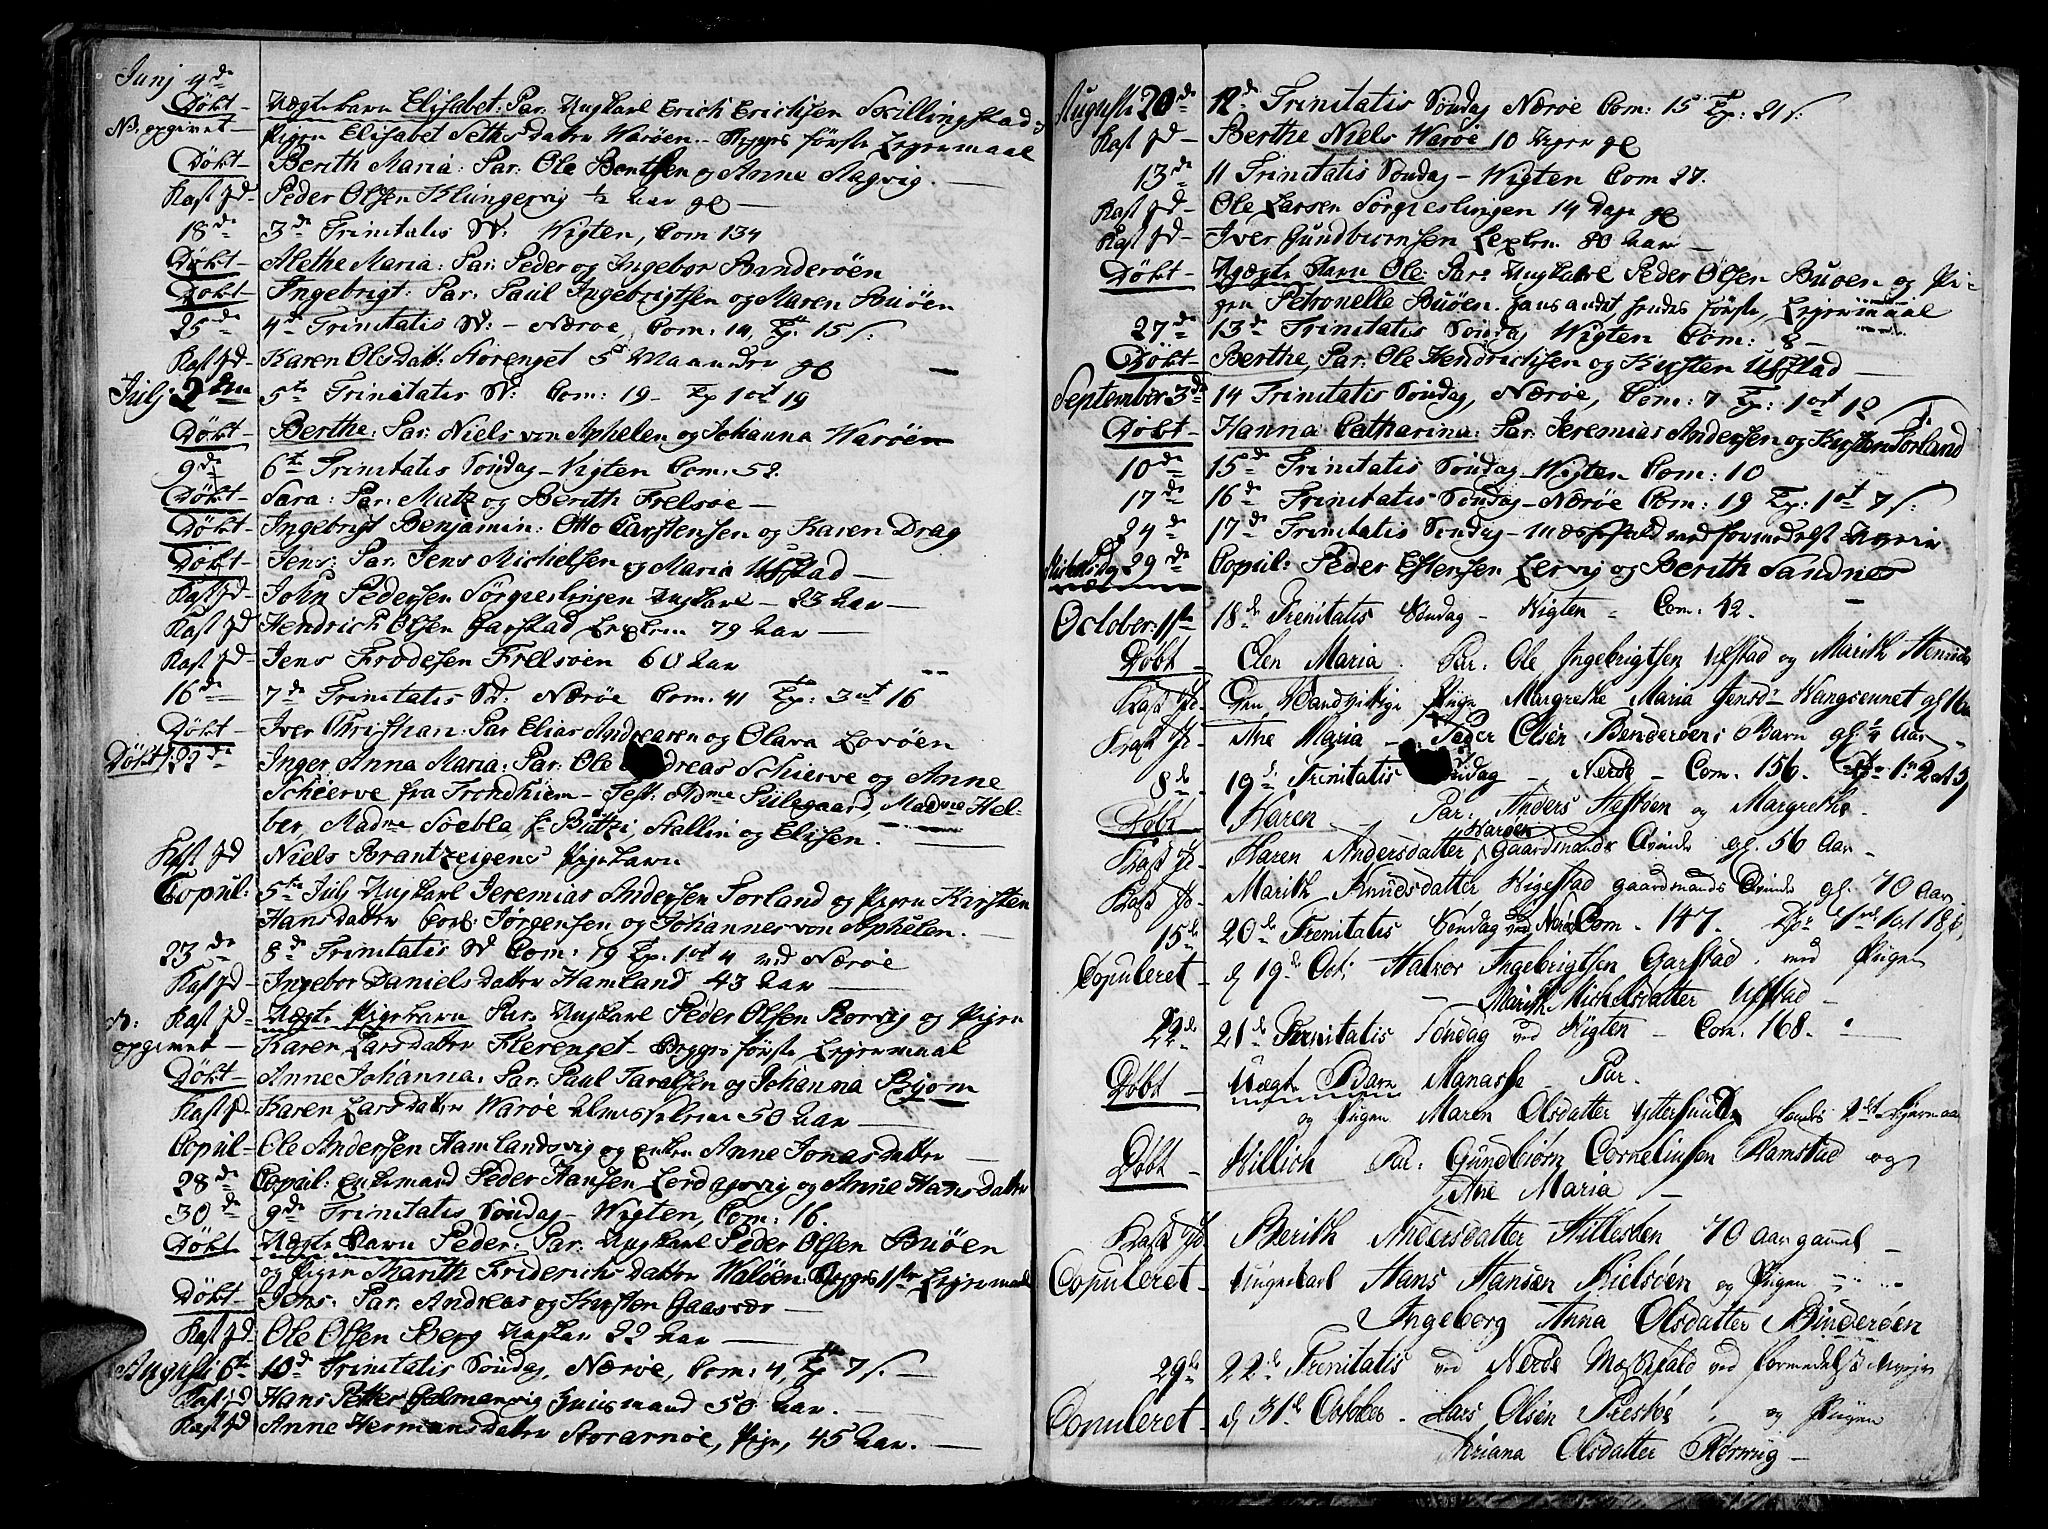 Junj 4de
Døbt – Uægte barn Elisabet: Par: Ungkarl Erich Erichsen Skillingstad og
NB. opgivet – Pigen Elisabet Sethsdatter Warøen. – Begges første Lejermaal
Døbt – Berith Maria: Par: Ole Bentsen og Anne Aagvig. –
Kast Jd – Peder Olsen Klungervig 1/2 aar gl –
18de 3de Trinitatis Sd: Wigten, Com 134
Døbt – Alethe Maria: Par: Peder og Ingebor Banderøen
Døbt – Ingebrigt: Par: Paul Ingebrigtsen og Maren Buøen
25de 4de Trinitatis Sd: – Nærøe, Com: 14, Tp: 15 s:
Kast Jd – Karen Olsdatt: Storenget 5 Maaneder gl –
Julj 2den 5te Trinitatis Sd: Com: 19 – Tp 1 ort 19
Døbt – Berthe: Par: Niels von Aphelen og Johanna Warøen
9de 6te Trinitatis Søndag – Wigten Com: 52.
Døbt – Sara: Par: Matz og Berith Frelsøe –
Døbt – Ingebrigt Benjamin: Otto Carstensen og Karen Drag
Døbt – Jens: Par: Jens Michelsen og Maria Ufstad –
Kast Jd – John Pedersen Sørgieslingen Ungkarl – 23 aar –
Kast Jd Hendrich Olsen Garstad Legdem 79 aar –
Kast Jd – Jens Frodesen Frelsøen 60 aar
16de 7de Trinitatis Sd: Nærøe Com: 41 Tp: 3 ort 16
Døbt – Iver Christhan: Par Elias Andreasen og Olava Lovøen
Døbt 22de Inger Anna Maria: Par: Ole Andreas Schierve og Anne
Schierve fra Trondhiem – Test: Madme Siilegaard, Madme Hel-
ber, Madme Søebla, Hr Bützi, Stallin og Elisen. –
Kast Jd Niels Brantzeigens Pigebarn
Copul: 5te Julj Ungkarl Jeremias Andersen Sørland og Pigen Kirsten
Hansdatter Corl: Jørgensen og Johannes von Aphelen. –
23de 8de Trinitatis Sd Com: 19 Tp. 1 ort 4 ved Nærøe
Kast Jd – Ingebor Daniels datter Hamland 43 aar –
N: Kast Jd – Uægte Pigebarn Par: Ungkarl Peder Olsen Rorvig og Pigen
opgivet – Karen Larsdatter Flerenget – Begges første Lejermaal
Døbt – Anne Johanna: Par: Paul Taralsen og Johanna Bjøm
Kast Jd – Karen Larsdatter Warøe Almisselem 50 aar –
Copul – Ole Andersen Hamlandsvig og enken Anne Jonasdatter –
28de Copul: enkemand Peder Hansen Lerdagsvig og Anne Hansdatter
30de 9de Trinitatis Søndag – Wigten, Com: 16.
Døbt – Uægte Barn Peder: Par: Ungkarl Peder Olsen Buøen
og Pigen Marith Friderichsdatter Waløen: Begges 1ste Lejermaal
Døbt – Jens: Par: Andreas og Kirsten Gaasvær –
Kast Jd – Ole Olsen Berg Ungkar 22 aar –
Augusti 6te 10de Trinitatis Søndag, Nærøe, Com: 4, Tp 7 s. –
Kast Jd Hans Petter Colmanvig Huusmand 50 aar. –
Kast Jd Anne Hermansdatter Storarnøe, Pige, 45 aar. –
Augusti 20de 12de Trinitatis Søndag Nærøe Com: 15 Tp: 21 s:
Kast Jd – Berthe Niels Warøe 10 Uger gl
13de 11 Trinitatis Søndag – Wigten Com 27.
Kast Jd – Ole Larsen Sørgieslingen 14 Dage gl
Kast Jd – Iver Gundbiørnsen Legdem 80 aar –
Døbt – Uægte Barn Ole: Par: Ungkarl Peder Olsen Buøen og Pi-
gen Petronelle Buøen. Hans andet hendes første, Lejermaal
27de 13de Trinitatis Søndag Wigten Com: 8 –
Døbt – Berthe, Par: Ole Hendrichsen og Kirsten Ufstad –
September 3de 14 Trinitatis Søndag, Nærøe, Com: 7 Tp: 1 ort 10
Døbt – Hanna Catharina: Par: Jeremias Andersen og Kirsten Sørland
10de 15de Trinitatis Søndag – Wigten Com: 10
17de 16de Trinitatis Søndag – Nærøe Com: 19 Tp: 1 ort 7 s:
24de 17de Trinitatis Søndag – Messefald med formedelst
29de Copul: Peder Estensen Lervig og Berith Sandnes
October 1ste 18de Trenitatis Søndag – Wigten – Com: 42. –
Døbt – Elen Maria. Par: Ole Ingebrigtsen Ufstad og Marith Henrichs
Kast Jd. Pige Margrethe Maria Jensd: Wangsennet gl 16
Kast Jd. Ane Maria – Peder Olsen Benderøens Barn gl. 1/4 Aar
8de 19de Trinitatis Søndag – Nerøe – Com. 156.
Døbt Karen – Par: Anders Hestøen og Margrethe.
Kast Jd. Karen Andersdatter Gaardmands Qvinde gl. 56 Aar –
Kast Jd. Marith Knudsdatter Wigestad gaardmands Qvinde gl: 70 Aar
15de 20de Trenitatis Søndag ved Nerøe Com – 147.
Copuleret – d 19de Oct: Halvor Ingebrigtsen Garstad. med Pigen
Marith Michelsdatter Ufstad –
22de 21de Trenitatis Søndag ved Wigten – Com. 168. –
Døbt – Uægte Barn Manasse – Par.
og Pigen Maren Olsdatter Yttersund
Døbt – Willich Par: Gundbiørn Cornelinsen Ramstad og
Ane Maria –
Kast Jd. Berith Andersdatter Hillesøen 70 aar gammel –
Copuleret – Ungekarl Hans Hansen Kielsøen og Pigen
Ingeborg Anna Olsdatter Binderøen
29de 22de Trenitatis ved Nerøe Messefald ved formedelst
Copuleret – d 31de October – Lars Olsen Prestøe og Pigen
Ariana Olsdatter Rørwiig –